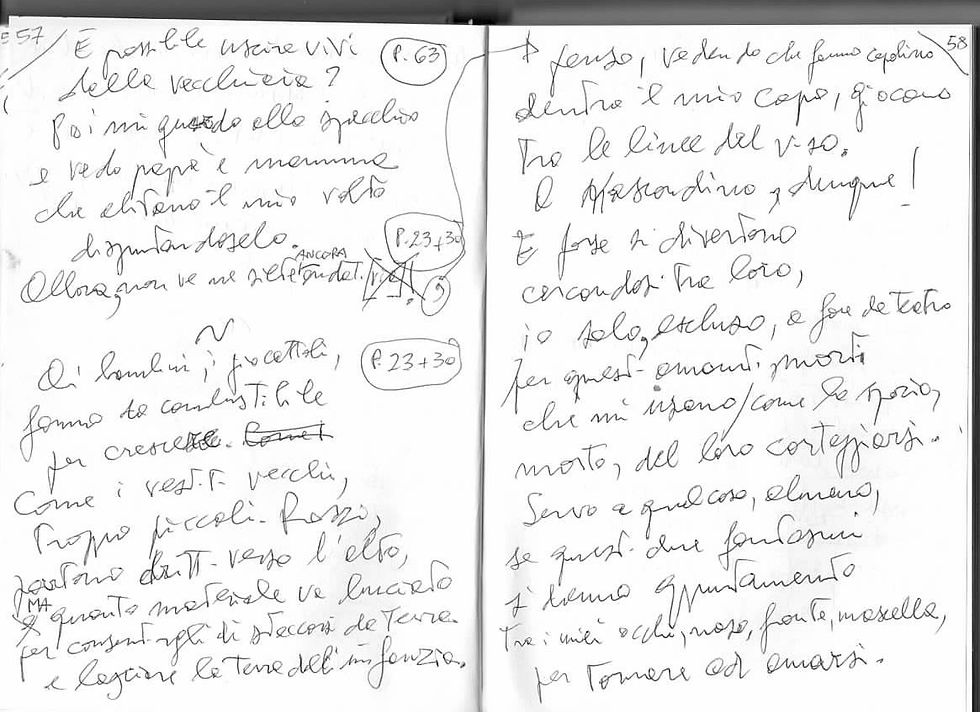 57
È possibile uscire vivi
dalla vecchiaia?
P. 63
Poi mi guardo allo specchio
e vedo papà e mamma
che abitano il mio volto
disputandoselo.
P. 23+30
Allora, non ve ne siete ANCORA andati!
Ai bambini, i giocattoli,
P. 23+30
fanno da combustibile
per crescere.
Come i vestiti vecchi,
troppo piccoli. Razzi,
partono dritti verso l'alto,
MA quanto materiale va bruciato
per consentirgli di staccarsi da terra
e lasciare la terra dell'infanzia.
58
penso, vedendo che fanno capolino
dentro il mio capo, giocano
tra le linee del viso.
A Nascondino, dunque!
E forse si divertono
cercandosi tra loro,
io solo, escluso, a fare da teatro
per questi amanti morti
che mi usano/come lo spazio,
morto, del loro corteggiarsi.
Servo a qualcosa, almeno,
se questi due fantasmi
si danno appuntamento
tra i miei occhi, naso, fronte, mascella,
per tornare ad amarsi.